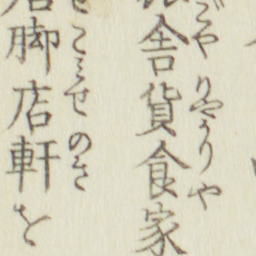 ごや りやうりや
舎貨食家
せ こみせ のき
脚店軒を